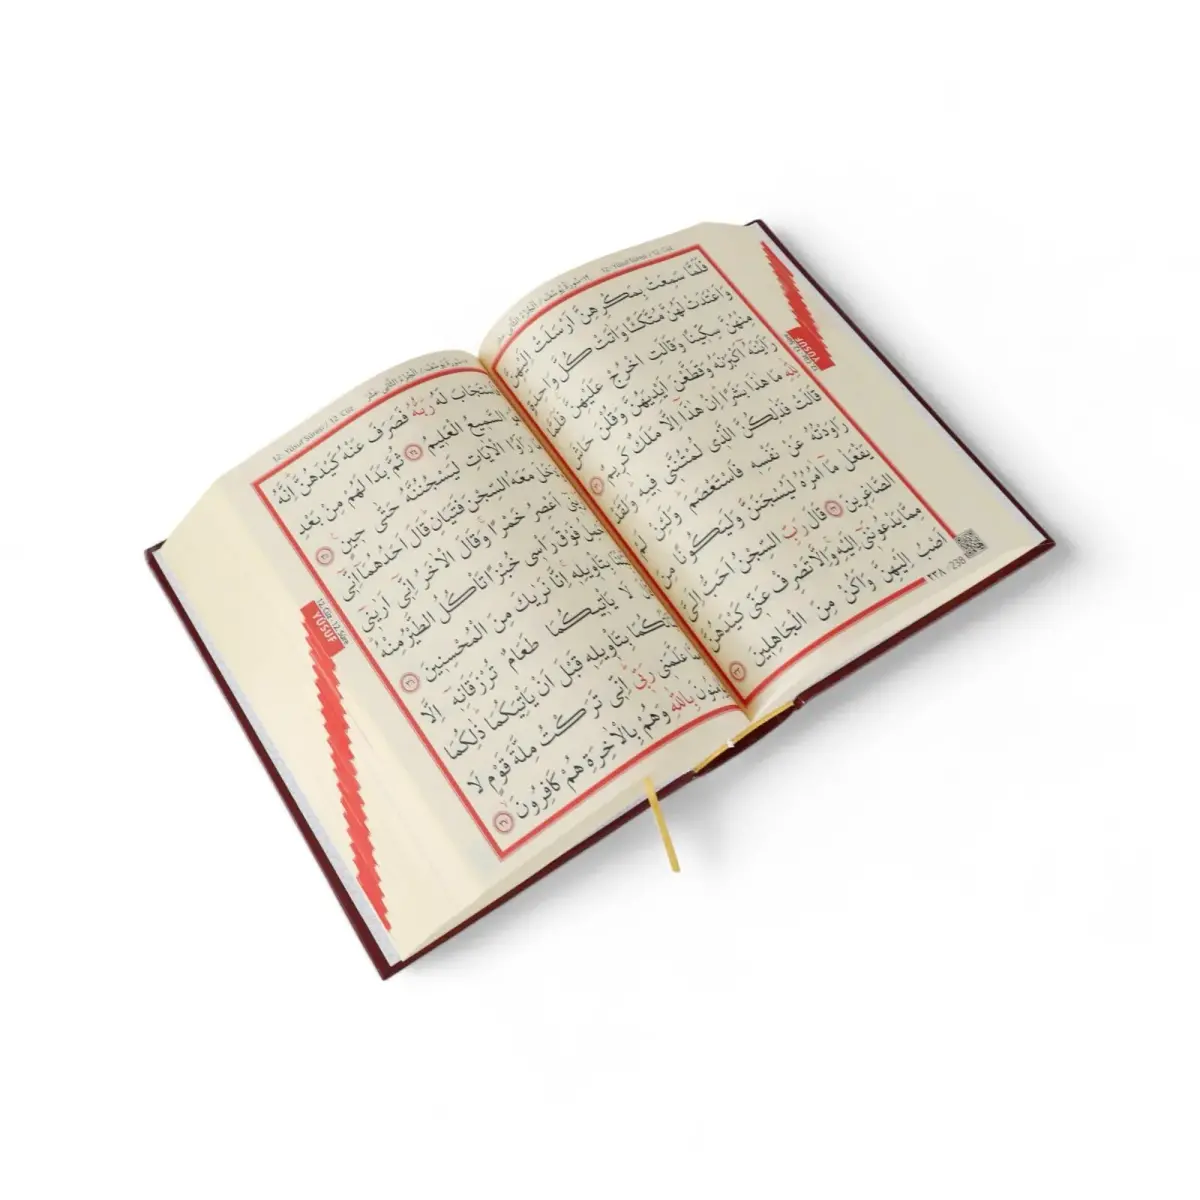 ١٢-سُورَةُ يُوسُفَ / اَلْجُزْءُ الثَّانِي عَشَرَ 12- Yûsuf Sûresi / 12. Cüz
فَلَمَّا سَمِعَتْ بِمَكْرِهِنَّ اَرْسَلَتْ اِلَيْهِنَّ
وَاَعْتَدَتْ لَهُنَّ مُتَّكَـًٔا وَاٰتَتْ كُلَّ وَاحِدَةٍ
مِنْهُنَّ سِكّ۪ينًا وَقَالَتِ اخْرُجْ عَلَيْهِنَّ فَلَمَّا
رَاَيْنَهُٓ اَكْبَرْنَهُ وَقَطَّعْنَ اَيْدِيَهُنَّ وَقُلْنَ حَاشَ
لِلّٰهِ مَا هٰذَا بَشَرًا اِنْ هٰذَٓا اِلَّا مَلَكٌ كَر۪يمٌ ٣١
قَالَتْ فَذٰلِكُنَّ الَّذ۪ي لُمْتُنَّن۪ي ف۪يهِ وَلَقَدْ
رَاوَدْتُهُ عَنْ نَفْسِه۪ فَاسْتَعْصَمَ وَلَئِنْ لَمْ
يَفْعَلْ مَٓا اٰمُرُهُ لَيُسْجَنَنَّ وَلَيَكُونًا مِنَ
الصَّاغِر۪ينَ ٣٢ قَالَ رَبِّ السِّجْنُ اَحَبُّ اِلَيَّ
مِمَّا يَدْعُونَن۪ٓي اِلَيْهِ وَاِلَّا تَصْرِفْ عَنّ۪ي كَيْدَهُنَّ
اَصْبُ اِلَيْهِنَّ وَاَكُنْ مِنَ الْجَاهِل۪ينَ ٣٣
٢٣٨ - 238
YÛSUF
12- Yûsuf Sûresi / 12. Cüz سُورَةُ يُوسُفَ / اَلْجُزْءُ الثَّانِي عَشَرَ
لَهُ رَبُّهُ فَصَرَفَ عَنْهُ كَيْدَهُنَّ اِنَّهُ
السَّم۪يعُ الْعَل۪يمُ ٣٤ ثُمَّ بَدَا لَهُمْ مِنْ بَعْدِ
رَاَوُا الْاٰيَاتِ لَيَسْجُنُنَّهُ حَتّٰى ح۪ينٍ ٣٥
مَعَهُ السِّجْنَ فَتَيَانِ قَالَ اَحَدُهُمَٓا اِنّ۪ٓي
اَعْصِرُ خَمْرًا وَقَالَ الْاٰخَرُ اِنّ۪ٓي اَرٰين۪ٓي
فَوْقَ رَاْس۪ي خُبْزًا تَاْكُلُ الطَّيْرُ مِنْهُ
بِتَاْو۪يلِه۪ اِنَّا نَرٰيكَ مِنَ الْمُحْسِن۪ينَ ٣٦
لَا يَاْت۪يكُمَا طَعَامٌ تُرْزَقَانِه۪ٓ اِلَّا
بِتَاْو۪يلِه۪ قَبْلَ اَنْ يَاْتِيَكُمَا ذٰلِكُمَا
عَلَّمَن۪ي رَبّ۪ي اِنّ۪ي تَرَكْتُ مِلَّةَ قَوْمٍ لَا
بِاللّٰهِ وَهُمْ بِالْاٰخِرَةِ هُمْ كَافِرُونَ ٣٧
12.Cüz - 12.Sûre
YÛSUF